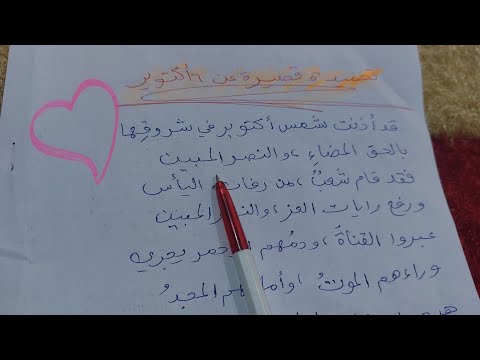 قصيدة قصيرة عن ٦ أكتوبر
قد أذنت شمس أكتوبر في شروقها
بالحق المضاء، والنصر المبين
فقد قام شعبٌ، من رفات اليأس
ورفع رايات العز، والنصر المبين
عبروا القناةَ، ودمُهم الأحمر يجري
وراءهم الموتُ، وأمامهم المجدُ